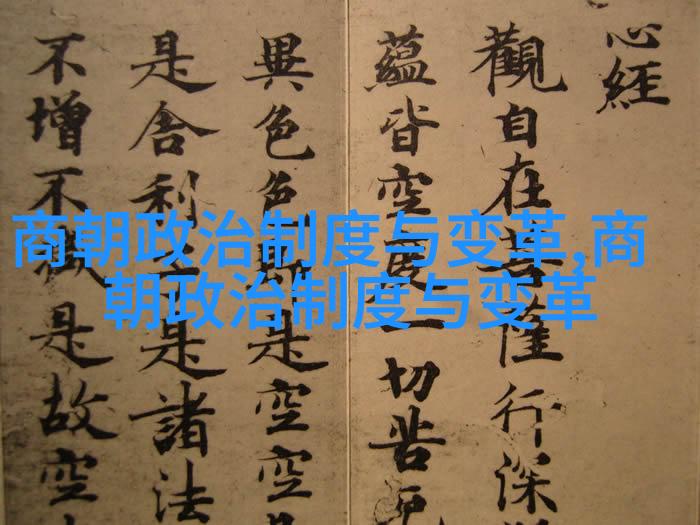 心經
觀自在菩薩行深
蘊皆空度一切苦厄
異色色即是空空
是舍利子是諸法
不增不減是故空
商朝政治制度与变革,商
朝政治制度与变革